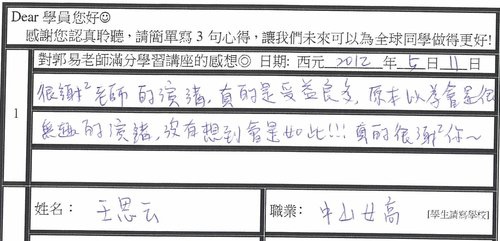 Dear 學員您好☺
感謝您認真聆聽，請簡單寫 3 句心得，讓我們未來可以為全球同學做得更好!
對郭易老師滿分學習講座的感想◎ 日期: 西元 2012 年 5 日 11 日
1
很謝²老師的演講，真的是受益良多，原本以為會是很
無趣的演講，沒有想到會是如此!!! 真的很謝²你~
姓名： 王思云
職業： 中山女高 [學生請寫學校]